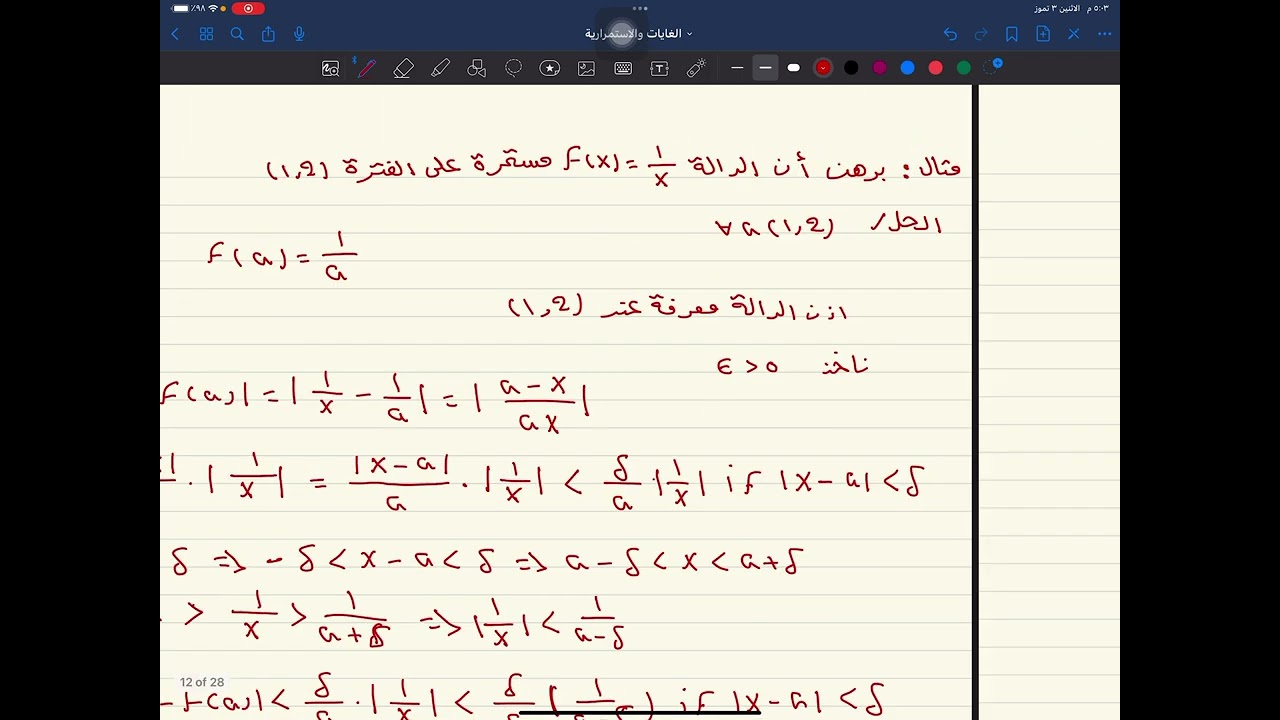 ٪٩٨
٥:٠٣ م الاثنين ٣ تموز
الغايات والاستمرارية
مثال: برهن أن الدالة f(x) = 1/x مستمرة على الفترة (1,2)
الحل/ ∀ a (1,2)
f(a) = 1/a
اذن الدالة معرفة عند (1,2)
ناخذ ϵ > 0
f(a)| = |1/x - 1/a| = |(a-x)/(ax)|
· |1/x| = |x-a|/a · |1/x| < δ/a · |1/x| if |x-a| < δ
δ => -δ < x-a < δ => a-δ < x < a+δ
> 1/x > 1/(a+δ) => |1/x| < 1/(a-δ)
- f(a)| < δ/a · |1/x| < δ/a (1/(a-δ)) if |x-a| < δ
12 of 28